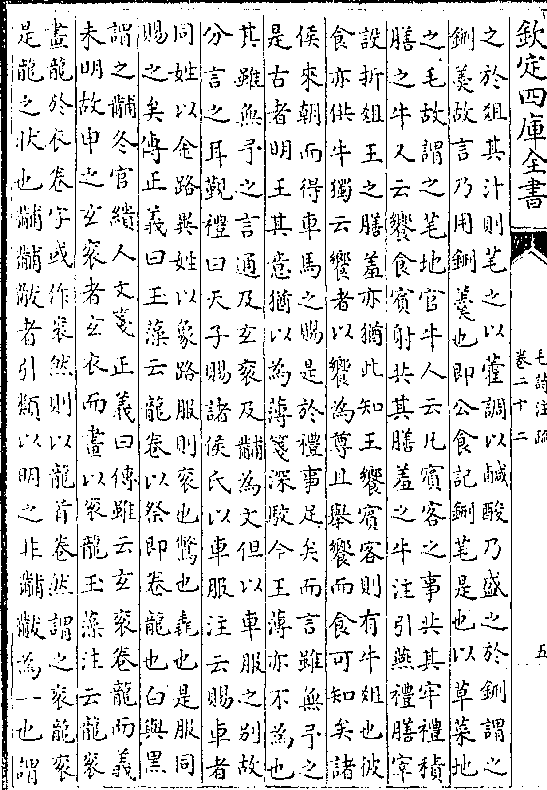 欽定四庫全書
毛詩注疏
卷二十二
五
之於俎其汁則芼之以藿調以鹹酸乃盛之於鉶謂之
鉶羹故言乃用鉶羹也即公食記鉶芼是也以草菜地
之毛故謂之芼地官牛人云凡賓客之事共其牢禮積
膳之牛又云饗食賓射共其膳羞之牛注引燕禮膳宰
設折俎王之膳羞亦猶此知王饗賓客則有牛俎也彼
食亦供牛獨云饗者以饗為尊且舉饗而食可知矣諸
侯來朝而得車馬之賜是於禮事足矣而言雖無予之
是古者明王其意猶以為薄箋深駮今王薄亦不為也
其雖無予之言通及玄衮及黼為文但以車服之别故
分言之耳覲禮曰天子賜諸侯氏以車服注云賜車者
同姓以金路異姓以象路服則衮也鷩也毳也是服同
賜之矣傳正義曰玉藻云龍卷以祭即卷龍也白與黒
謂之黼冬官繢人文箋正義曰傳雖云玄衮卷龍而義
未明故申之玄衮者玄衣而畫以衮龍玉藻注云龍衮
畫龍於衣卷字或作衮然則以龍首卷然謂之衮龍衮
是龍之狀也黼黼黻者引類以明之非黼黻為一也謂